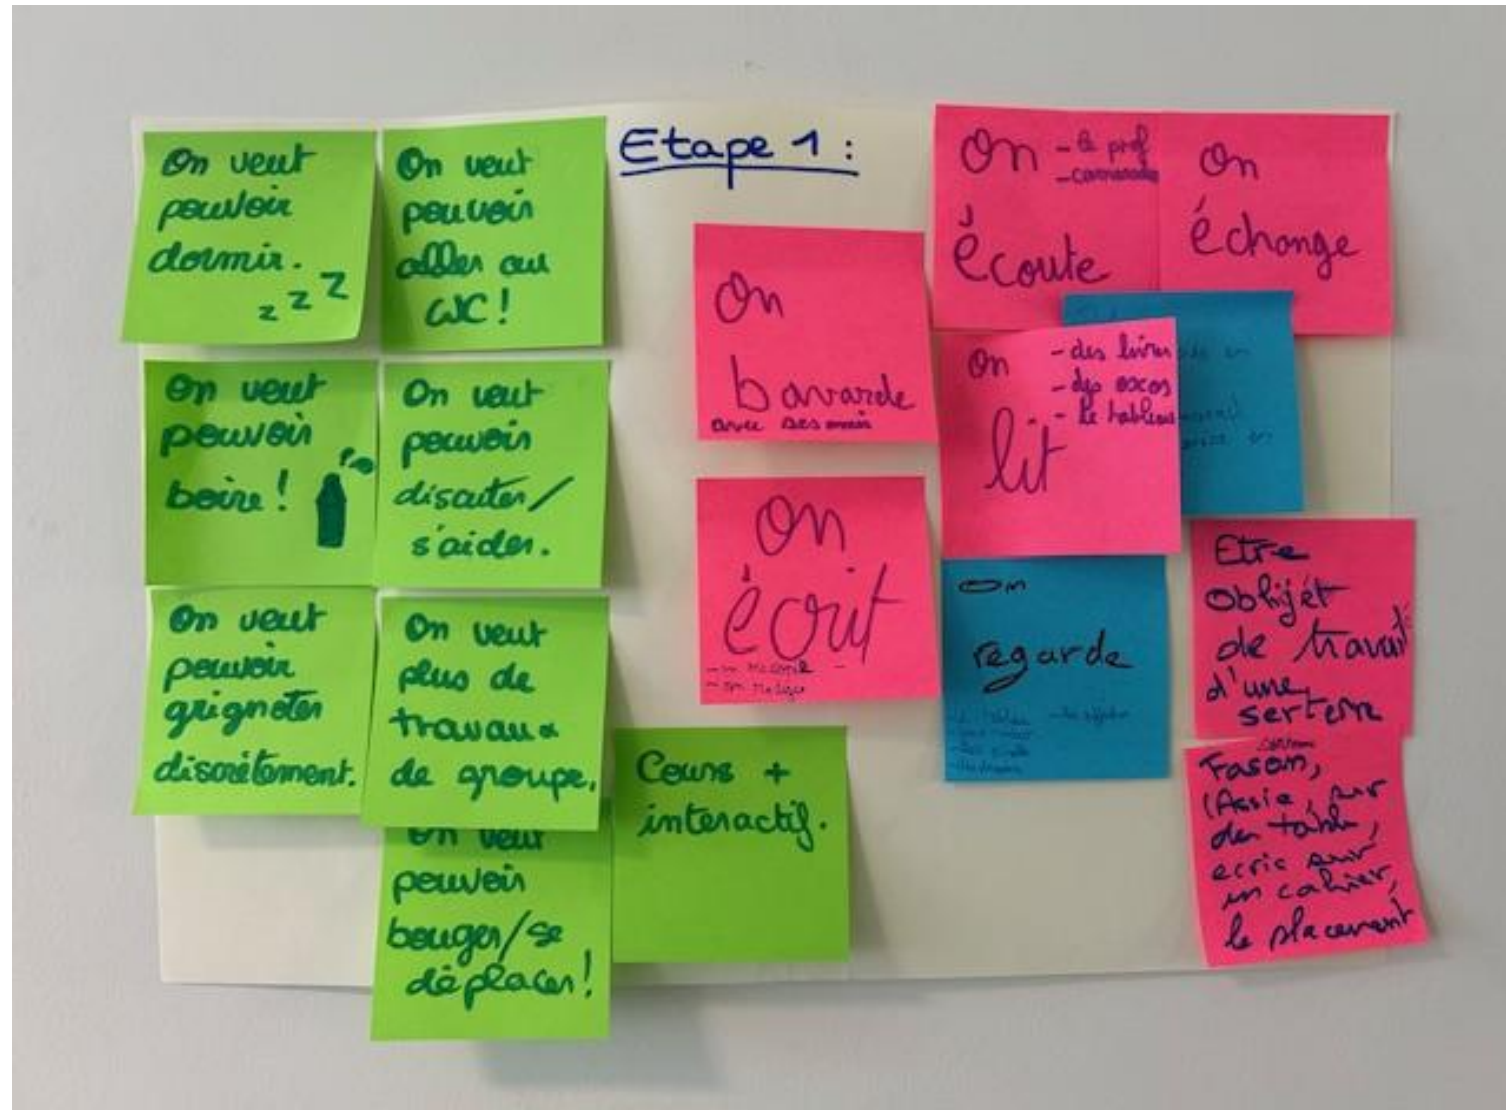 Etape 1 :
On veut
pouvoir
dormir.
z z z
On veut
pouvoir
aller au
WC !
On veut
pouvoir
boire !
On veut
pouvoir
discuter/
s'aider.
On veut
pouvoir
grignoter
discrètement.
On veut
plus de
travaux
de groupe.
On veut
pouvoir
bouger/se
déplacer !
Cours +
interactif.
On
bavarde
avec ses amis
On
écrit
On
- le prof
- camarades
écoute
On
échange
On
- des livres
- des exos
- le tableau
lit
On
regarde
Etre
oblijét
de travail
d'une
serterne
Fason,
(Assie, sur
der table,
ecric sur
un cahier,
le placement